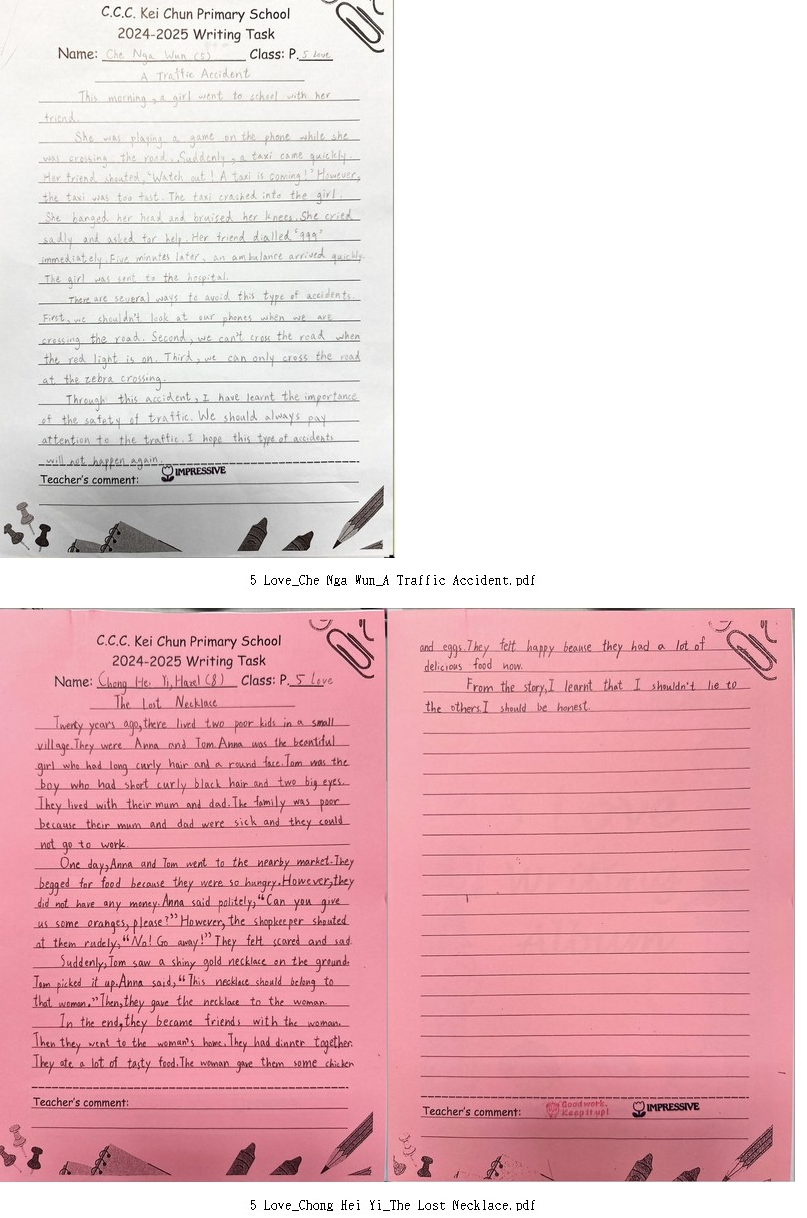 C.C.C. Kei Chun Primary School
2024-2025 Writing Task
Name: Che Nga Wun (5) Class: P. 5 Love
A Traffic Accident
This morning, a girl went to school with her
friend.
She was playing a game on the phone while she
was crossing the road. Suddenly, a taxi came quickly.
Her friend shouted, "Watch out! A taxi is coming!" However,
the taxi was too fast. The taxi crashed into the girl.
She hanged her head and bruised her knees. She cried
sadly and asked for help. Her friend dialled "999"
immediately. Five minutes later, an ambulance arrived quickly.
The girl was sent to the hospital.
There are several ways to avoid this type of accidents.
First, we shouldn't look at our phones when we are
crossing the road. Second, we can't cross the road when
the red light is on. Third, we can only cross the road
at the zebra crossing.
Through this accident, I have learnt the importance
of the safety of traffic. We should always pay
attention to the traffic. I hope this type of accidents
will not happen again.
Teacher's comment: IMPRESSIVE
5 Love_Che Nga Wun_A Traffic Accident.pdf
C.C.C. Kei Chun Primary School
2024-2025 Writing Task
Name: Chong Hei Yi, Hazel (8) Class: P. 5 Love
The Lost Necklace
Twenty years ago, there lived two poor kids in a small
village. They were Anna and Tom. Anna was the beautiful
girl who had long curly hair and a round face. Tom was the
boy who had short curly black hair and two big eyes.
They lived with their mum and dad. The family was poor
because their mum and dad were sick and they could
not go to work.
One day, Anna and Tom went to the nearby market. They
begged for food because they were so hungry. However, they
did not have any money. Anna said politely, "Can you give
us some oranges, please?" However, the shopkeeper shouted
at them rudely, "No! Go away!" They felt scared and sad.
Suddenly, Tom saw a shiny gold necklace on the ground.
Tom picked it up. Anna said, "This necklace should belong to
that woman." Then, they gave the necklace to the woman.
In the end, they became friends with the woman.
Then they went to the woman's home. They had dinner together.
They ate a lot of tasty food. The woman gave them some chicken
Teacher's comment:
and eggs. They felt happy beause they had a lot of
delicious food now.
From the story, I learnt that I shouldn't lie to
the others. I should be honest.
Teacher's comment: Good work. Keep it up! IMPRESSIVE
5 Love_Chong Hei Yi_The Lost Necklace.pdf